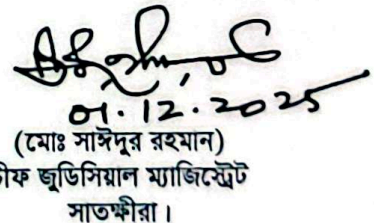 01.12.2025
(মোঃ সাঈদুর রহমান)
চীফ জুডিসিয়াল ম্যাজিস্ট্রেট
সাতক্ষীরা।